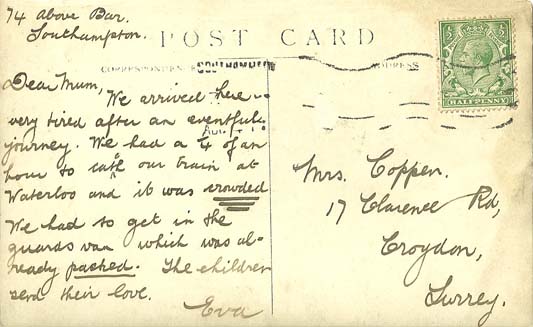 74 Above Bar.
Southampton.
POST CARD
CORRESPONDENCE
SOUTHAMPTON
ADDRESS
HALFPENNY
Dear Mum,
We arrived here
very tired after an eventful
journey. We had a ¼ of an
hour to catch our train at
Waterloo and it was crowded
We had to get in the
guards van which was al-
ready packed. The children
send their love.
Eva
Mrs. Coppen.
17 Clarence Rd,
Croydon,
Surrey.